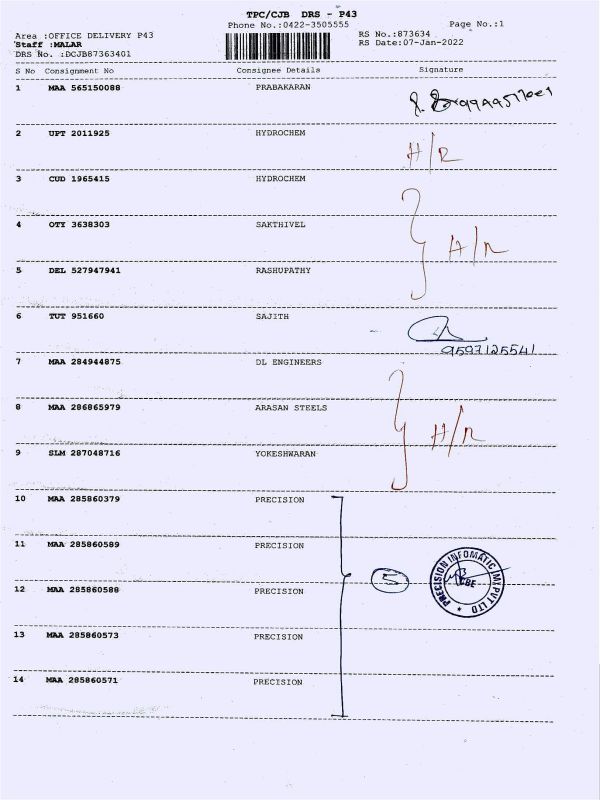 TPC/CJB DRS - P43
Phone No.:0422-3505555
Page No.:1
Area :OFFICE DELIVERY P43
RS No.:873634
Staff :MALAR
RS Date:07-Jan-2022
DRS No. :DCJB87363401
S No Consignment No Consignee Details Signature
1 MAA 565150088 PRABAKARAN
2 UPT 2011925 HYDROCHEM
H/R
3 CUD 1965415 HYDROCHEM
4 OTY 3638303 SAKTHIVEL
H/R
5 DEL 527947941 RASHUPATHY
6 TUT 951660 SAJITH
9597125541
7 MAA 284944875 DL ENGINEERS
8 MAA 286865979 ARASAN STEELS
H/R
9 SLM 287048716 YOKESHWARAN
10 MAA 285860379 PRECISION
11 MAA 285860589 PRECISION
5
PRECISION INFOMATIC (M) PVT LTD
CBE
12 MAA 285860588 PRECISION
13 MAA 285860573 PRECISION
14 MAA 285860571 PRECISION